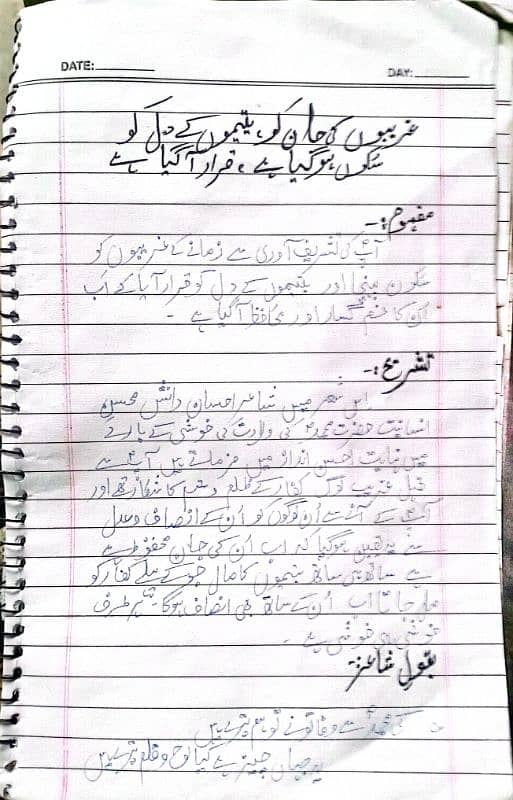 DATE:
DAY:
غریبوں کی جان کو، یتیموں کے دل کو
سکوں ہو گیا ہے ، قرار آ گیا ہے
مفہوم:-
آپؐ کی تشریف آوری سے زمانے کے غریبوں کو
سکون ملا اور یتیموں کے دل کو قرار آیا کے اب
ان کا غم گسار اور محافظ آ گیا ہے -
تشریح:-
اس شعر میں شاعر احسان دانش محسنِ
انسانیت حضرت محمدؐ کی ولادت کی خوشی کے بارے
میں نہایت احسن انداز میں فرماتے ہیں آپؐ سے
قبل غریب لوگ کفار کے ظلم و ستم کا شکار تھے اور
آپؐ کے آنے سے اُن لوگوں کو اُن کے انصاف و عدل
سے یہ یقین ہوگیا کہ اب ان کی جان محفوظ
ہے ساتھ ہی ساتھ یتیموں کا مال جو کے پہلے کفار کو
جاتا اب اُن کے ساتھ بھی انصاف ہوگا۔ ہر طرف
خوشی ہی خوشی ہے -
بقول شاعر:-
کی محمدؐ سے وفا تو نے تو ہم تیرے ہیں
یہ جہاں چیز ہے کیا لوح و قلم تیرے ہیں